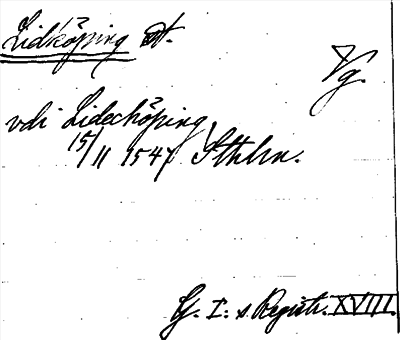 Lidköping st.
Vg.
vdi Lidechöping
15/11 1547 Sthlm.
G. I:s Registr. XVIII.